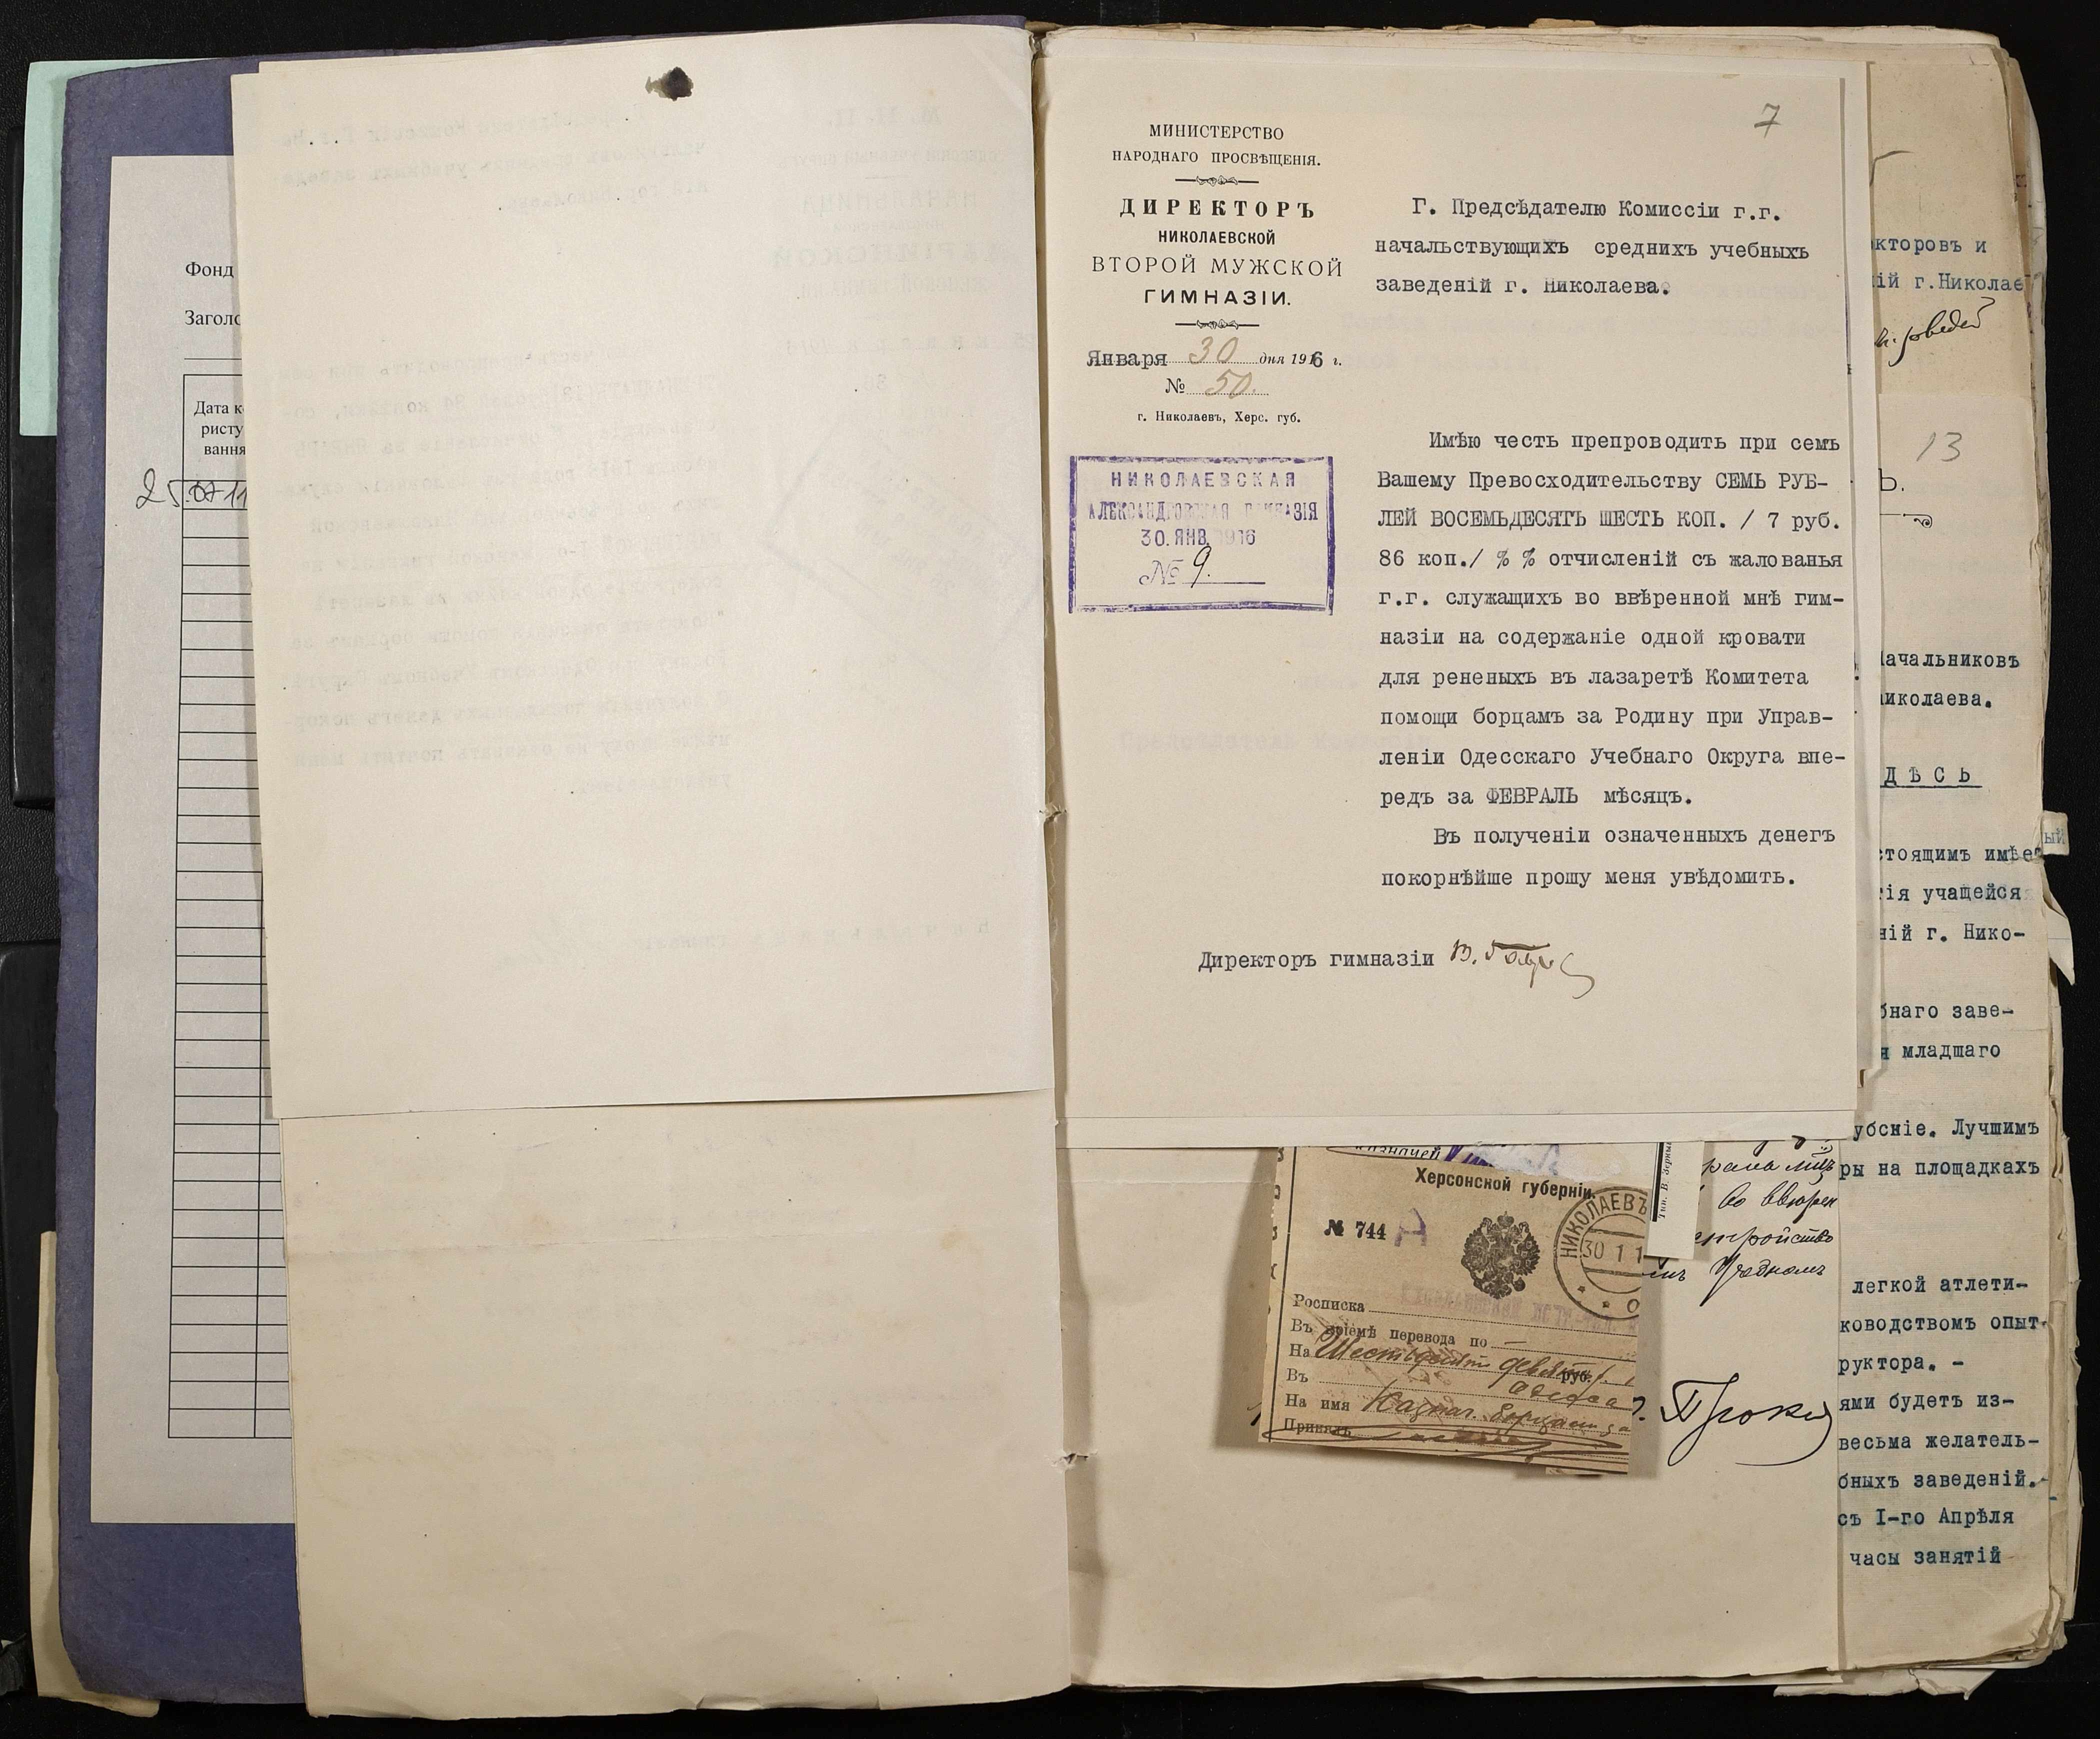 Фонд
Заголо
Дата к
ристу
вання
25.07.11
7
МИНИСТЕРСТВО
НАРОДНАГО ПРОСВѢЩЕНІЯ.
ДИРЕКТОРЪ
НИКОЛАЕВСКОЙ
ВТОРОЙ МУЖСКОЙ
ГИМНАЗІИ.
Января 30 дня 1916 г.
№ 50.
г. Николаевъ, Херс. губ.
НИКОЛАЕВСКАЯ
АЛЕКСАНДРОВСКАЯ ГИМНАЗІЯ
30. ЯНВ. 1916
№ 9.
Г. Предсѣдателю Комиссіи г.г.
начальствующихъ среднихъ учебныхъ
заведеній г. Николаева.
Имѣю честь препроводить при семъ
Вашему Превосходительству СЕМЬ РУБ-
ЛЕЙ ВОСЕМЬДЕСЯТЪ ШЕСТЬ КОП. / 7 руб.
86 коп./ % % отчисленій съ жалованья
г.г. служащихъ во ввѣренной мнѣ гим-
назіи на содержаніе одной кровати
для рененыхъ въ лазаретѣ Комитета
помощи борцамъ за Родину при Управ-
леніи Одесскаго Учебнаго Округа впе-
редъ за ФЕВРАЛЬ мѣсяцъ.
Въ полученіи означенныхъ денегъ
покорнѣйше прошу меня увѣдомить.
Директоръ гимназіи
азначей
Херсонской губерніи.
№ 744
НИКОЛАЕВЪ
30 1 1
Росписка
Въ пріемѣ перевода по —
На Шестьдесят девять руб.
Въ Одесса
На имя Казнач. Борцам за
Принялъ
Тип. В. Зерны
во ввѣрен
кторовъ и
ій г.Николае
13
Ь.
ачальниковъ
иколаева.
ДѢСЬ
стоящимъ имѣе
ія учащейся
ній г. Нико-
бнаго заве-
я младшаго
убскіе. Лучшимъ
ры на площадкахъ
легкой атлети-
ководствомъ опыт-
руктора. -
ями будетъ из-
весьма желатель-
бныхъ заведеній.-
съ I-го Апрѣля
часы занятій
ый